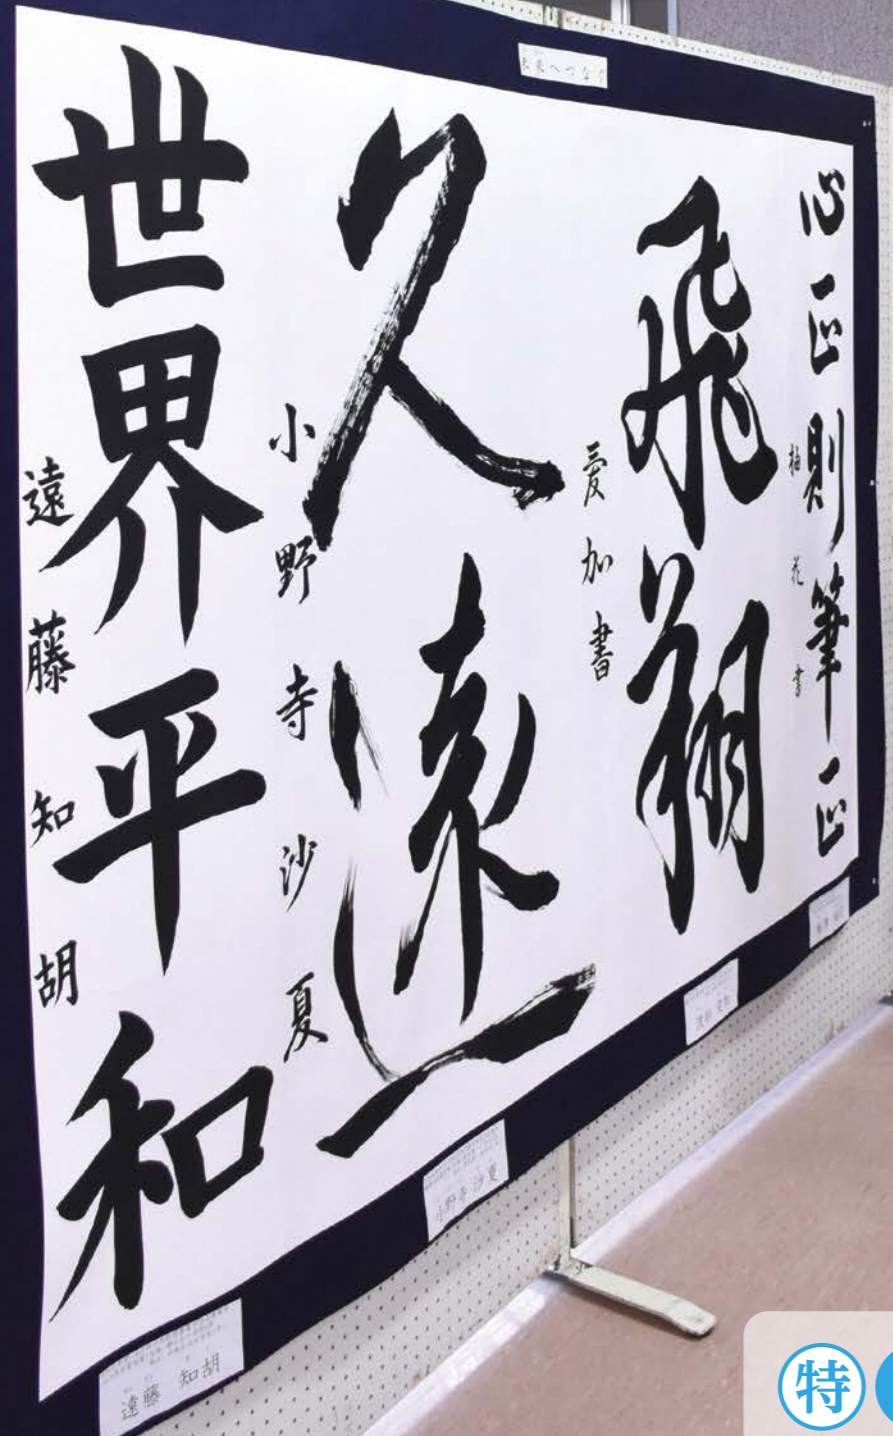 未来へつなぐ
心正則筆正
柚花書
飛翔
愛加書
久遠
小野寺沙夏
世界平和
遠藤知胡
小野寺 沙夏
遠藤 知胡
特